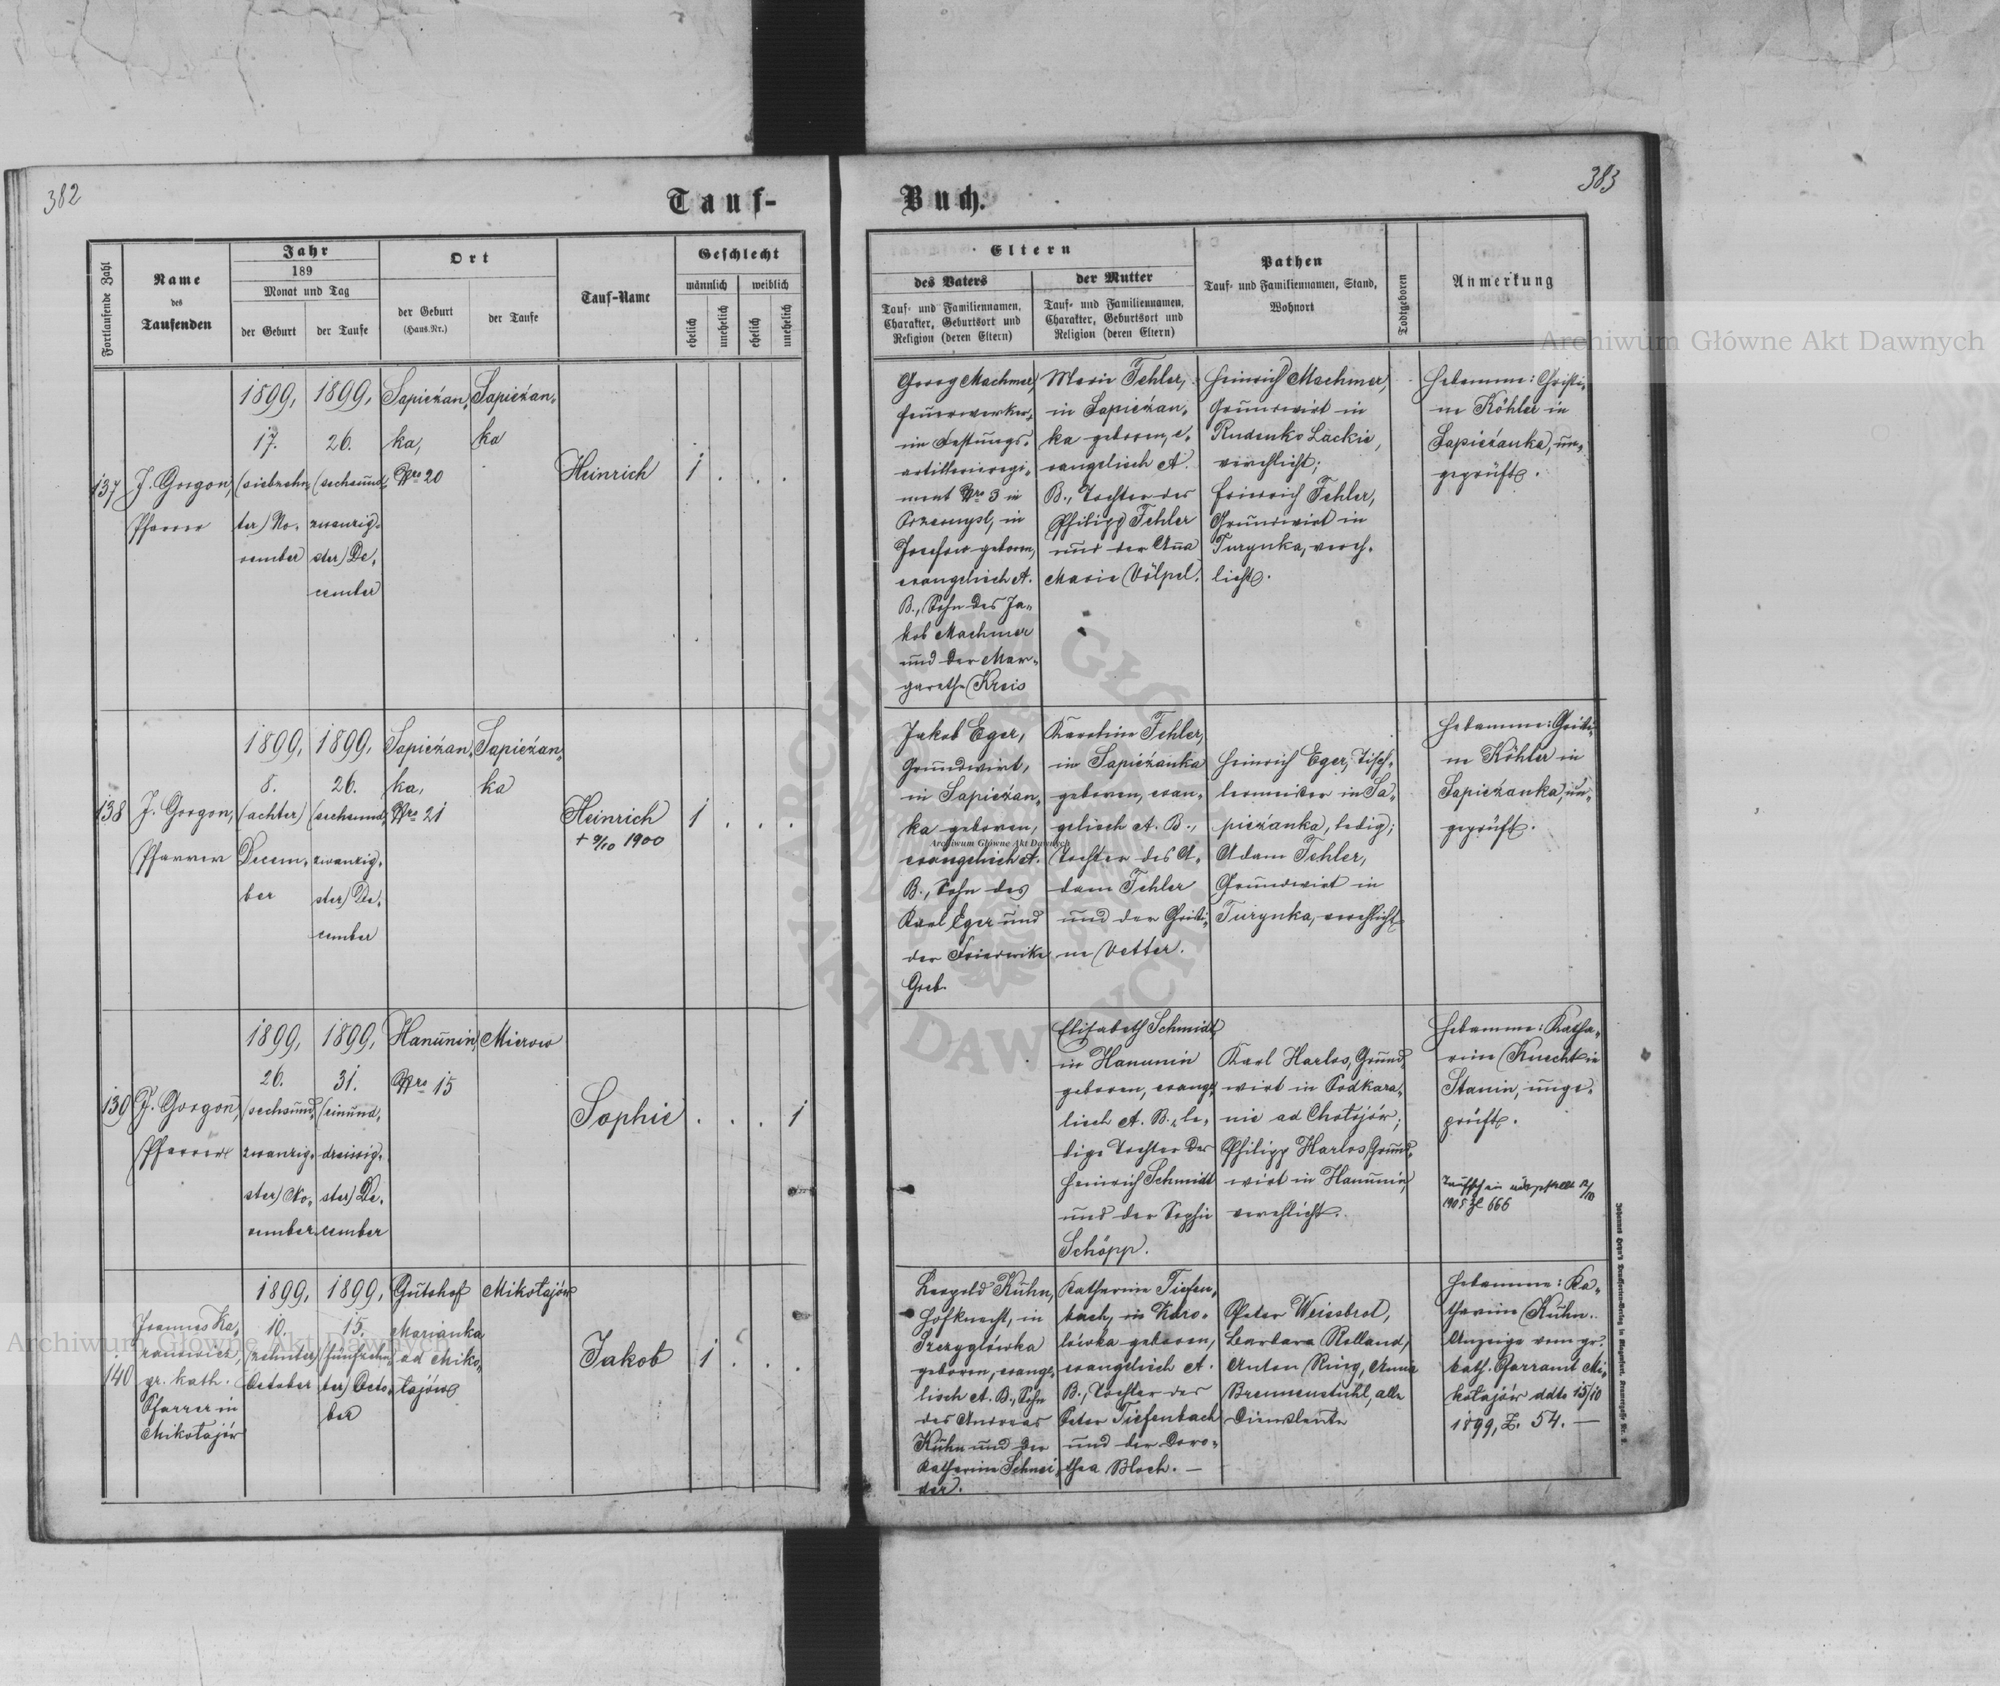 382
383
Tauf-
Buch.
Fortlaufende Zahl
Name
des
Taufenden
Jahr
189
Monat und Tag
der Geburt
der Taufe
Ort
der Geburt
(Haus.Nr.)
der Taufe
Tauf-Name
Geschlecht
männlich
weiblich
ehelich
unehelich
ehelich
unehelich
Eltern
des Vaters
Tauf- und Familiennamen,
Charakter, Geburtsort und
Religion (deren Eltern)
der Mutter
Tauf- und Familiennamen,
Charakter, Geburtsort und
Religion (deren Eltern)
Pathen
Tauf- und Familiennamen, Stand,
Wohnort
Todtgeboren
Anmerkung
137
J. Gorgon,
Pfarrer
1899,
17.
(siebzehn
ter) No-
vember
1899,
26.
(sechsund-
zwanzig-
ster) De-
cember
Sapieżan-
ka,
Nro 20
Sapieżan-
ka
Heinrich
1 . . .
Georg Machmer,
Feuerwerker
im Festungs-
artillerieregi-
ment Nro 3 in
Przemysl, in
Josefow geboren,
evangelisch A.
B., Sohn des Ja-
kob Machmer
und der Mar-
garethe Kreis
Marie Fehler,
in Sapieżan-
ka geboren, e-
vangelisch A.
B., Tochter des
Philipp Fehler
und der Anna
Marie Völpel.
Heinrich Machmer,
Grundwirt in
Rudenko Lackie,
verehlicht;
Friedrich Fehler,
Grundwirt in
Turynka, vereh-
licht.
Hebamme: Christi-
ne Köhler in
Sapieżanka, un-
geprüft.
138
J. Gorgon,
Pfarrer
1899,
8.
(achter)
Decem-
ber
1899,
26.
(sechsund-
zwanzig-
ster) De-
cember
Sapieżan-
ka,
Nro 21
Sapieżan-
ka
Heinrich
+ 9/10 1900
1 . . .
Jakob Eger,
Grundwirt,
in Sapieżan-
ka geboren,
evangelisch A.
B., Sohn des
Karl Eger und
der Friederike
Greb.
Karoline Fehler,
in Sapieżanka
geboren, evan-
gelisch A. B.,
Tochter des A-
dam Fehler
und der Christi-
ne Vetter.
Heinrich Eger, Tisch-
lermeister in Sa-
pieżanka, ledig;
Adam Fehler,
Grundwirt in
Turynka, verehlicht
Hebamme: Christi-
ne Köhler in
Sapieżanka, un-
geprüft.
130
J. Gorgon,
Pfarrer
1899,
26.
(sechsund-
zwanzig-
ster) No-
vember
1899,
31.
(einund-
dreissig-
ster) De-
cember
Hanunin,
Nro 15
Mierow
Sophie
. . . 1
Elisabeth Schmidt,
in Hanunin
geboren, evange-
lisch A. B., le-
dige Tochter des
Heinrich Schmidt
und der Sophie
Schöpp.
Karl Harlos, Grund-
wirt in Podkara-
nie ad Chotojów;
Philipp Harlos, Grund-
wirt in Hanunin,
verehlicht.
Hebamme: Katha-
rine Knecht in
Stanin, unge-
prüft.
Taufschein
1905 Zl 666
140
Joannes Ka-
ranowicz,
gr. kath.
Pfarrer in
Mikołajów
1899,
10.
(zehnter)
October
1899,
15.
(fünfzehn-
ter) Octo-
ber
Gutshof
Marianka
ad Miko-
łajów
Mikołajów
Jakob
1 . . .
Leopold Kuhn,
Hofknecht, in
Szczyglówka
geboren, evange-
lisch A. B., Sohn
des Andreas
Kuhn und der
Katharine Schnei-
der.
Katharine Tiefen-
bach, in Kdro-
lówka geboren,
evangelisch A.
B., Tochter des
Peter Tiefenbach
und der Doro-
thea Bloch. —
Peter Weissbrot,
Barbara Rolland,
Anton Ring, Anna
Brennenstuhl, alle
Dienstleute
Hebamme: Ka-
tharine Kuhn.
Anzeige vom gr.
kath. Pfarramt Mi-
kołajów ddto 15/10
1899, Z. 54. —
Archiwum Główne Akt Dawnych
Archiwum Główne Akt Dawnych
Archiwum Główne Akt Dawnych